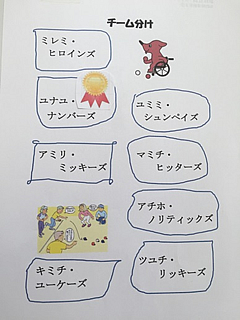 チーム分け
ミレミ・
ヒロインズ
ユナユ・
ナンバーズ
アミリ・
ミッキーズ
キミチ・
ユーケーズ
ユミミ・
シュンペイズ
マミチ・
ヒッターズ
アチホ・
ノリティックズ
ツユチ・
リッキーズ